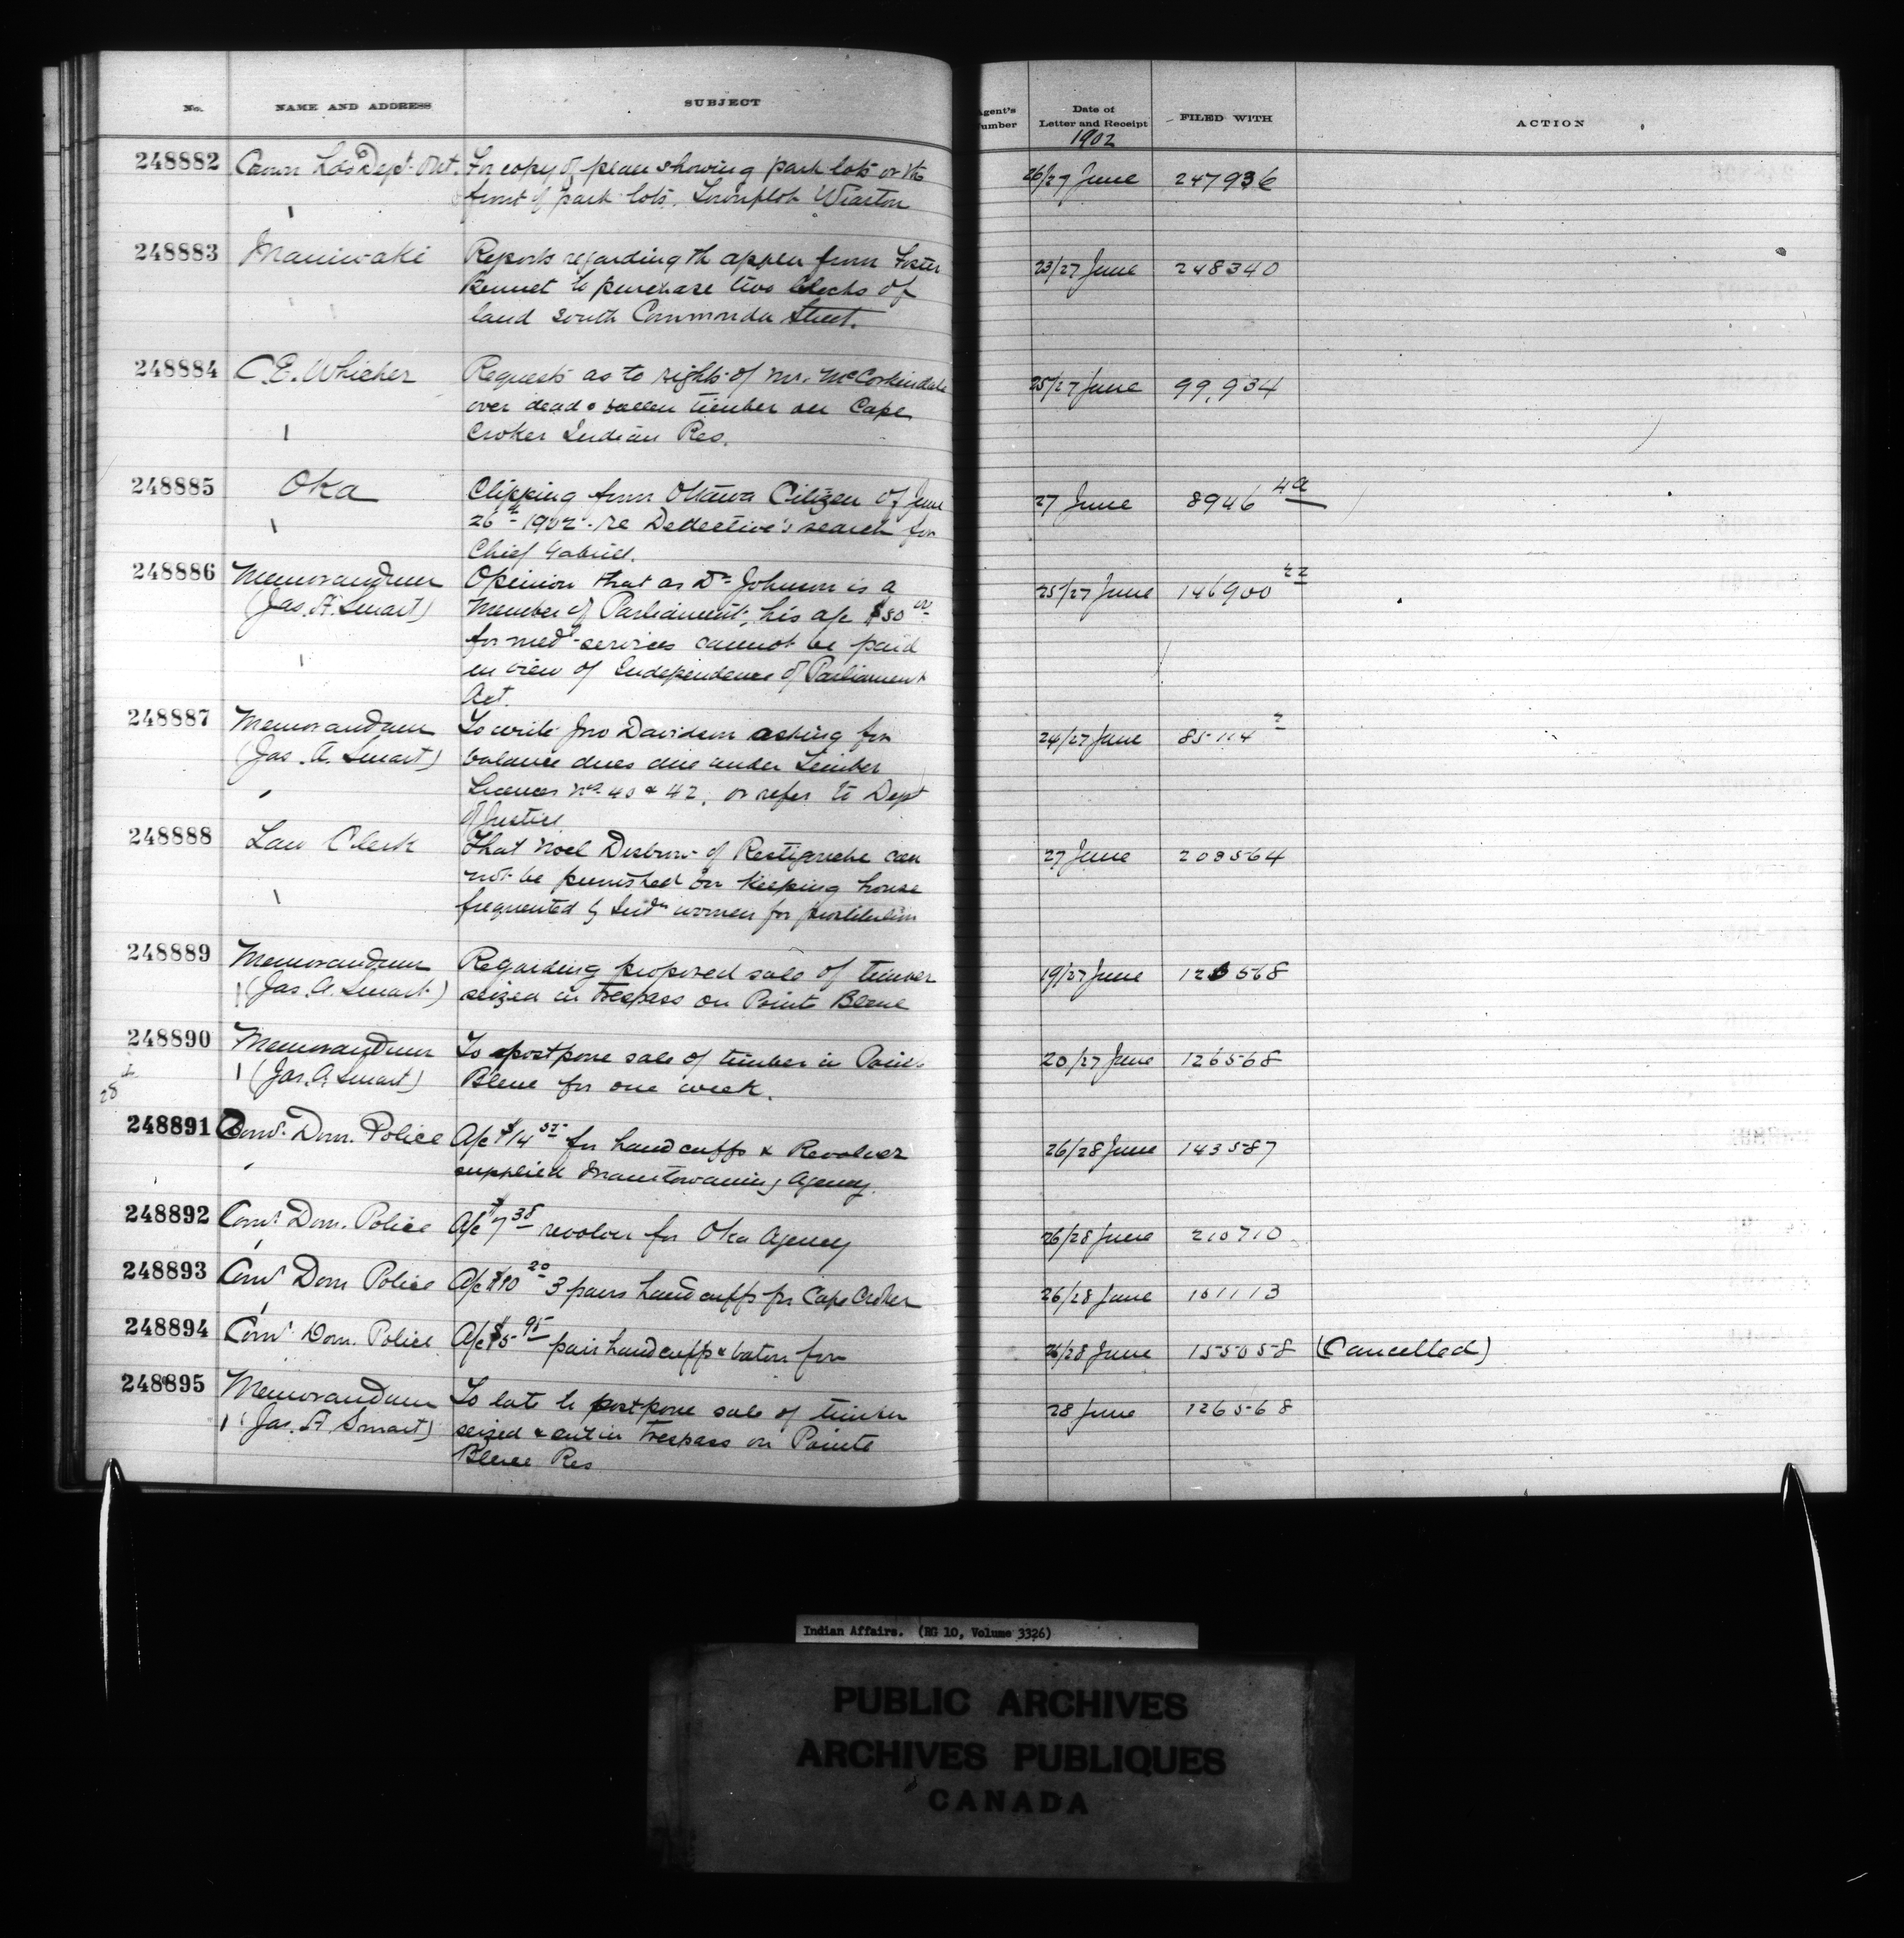 No. NAME AND ADDRESS SUBJECT Agent's Number Date of Letter and Receipt FILED WITH ACTION
1902
248882 Crown Lds Dept. Ont. For copy of plan showing park lots or the 26/27 June 247936
front of park lots, Townplot Wiarton
248883 Maniwaki Reports regarding th appn from Foster 23/27 June 248340
Bennet to purchase two blocks of
land south Commonda Street.
248884 C.E. Whicher Requests as to rights of Mr. McCorkindale 25/27 June 99,934
over dead & fallen timber on Cape
Croker Indian Res.
248885 Oka Clipping from Ottawa Citizen of June 27 June 8946 4a
26th 1902 re Detective's search for
Chief Gabriel.
248886 Memorandum Opinion that as Dr Johnson is a 25/27 June 146900
(Jas. A. Smart) Member of Parliament, his a/c $50 00
for med. services cannot be paid
in view of Independence of Parliament
Act.
248887 Memorandum To write Jno Davidson asking for 24/27 June 85114 2
(Jas. A. Smart) balance dues due under Timber
Licences Nos 40 & 42, or refer to Dept
of Justice
248888 Law Clerk That Noel of Restigouche can 27 June 209564
not be punished for keeping house
frequented by Indn women for prostitution
248889 Memorandum Regarding proposed sale of timber 19/27 June 126568
(Jas. A. Smart) seized in trespass on Pointe Bleue
248890 Memorandum To postpone sale of timber in Pointe 20/27 June 126568
(Jas. A. Smart) Bleue for one week.
28
248891 Comr. Dom. Police A/c $14 for handcuffs & Revolver 26/28 June 143587
supplied Manitowaning Agency.
248892 Comr Dom. Police A/c $7 35 revolver for Oka Agency 26/28 June 210710
248893 Comr Dom Police A/c $10 20 3 pairs handcuffs for Cape Croker 26/28 June 101113
248894 Comr Dom. Police A/c $5 95 pair handcuffs & baton for 26/28 June 155058 (Cancelled)
248895 Memorandum To late to postpone sale of timber 28 June 126568
(Jas. A Smart) seized & cut in trespass on Pointe
Bleue Res
Indian Affairs. (RG 10, Volume 3326)
PUBLIC ARCHIVES
ARCHIVES PUBLIQUES
CANADA